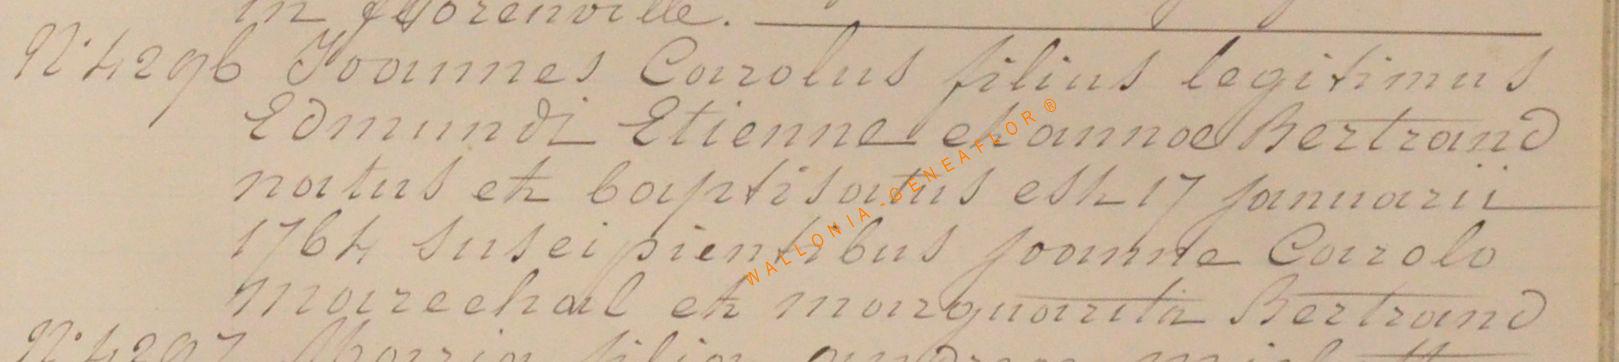 in florenville.
N°4296 Joannes Carolus filius legitimus
Edmundi Etienne et annae Bertrand
natus et baptisatus est 17 januarii
1764 suscipientibus joanne Carolo
marechal et marguarita Bertrand
N°4297 Maria filia
WALLONIA-GENEAFLOR®